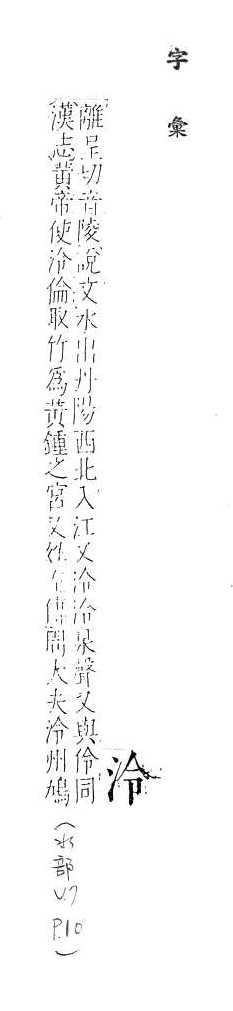 字彙
泠
離呈切音陵說文水出丹陽西北入江又泠泠泉聲又與伶同
漢志黃帝使泠倫取竹爲黃鍾之宮又姓左傳周大夫泠州鳩
(水部
V.7
P.10)